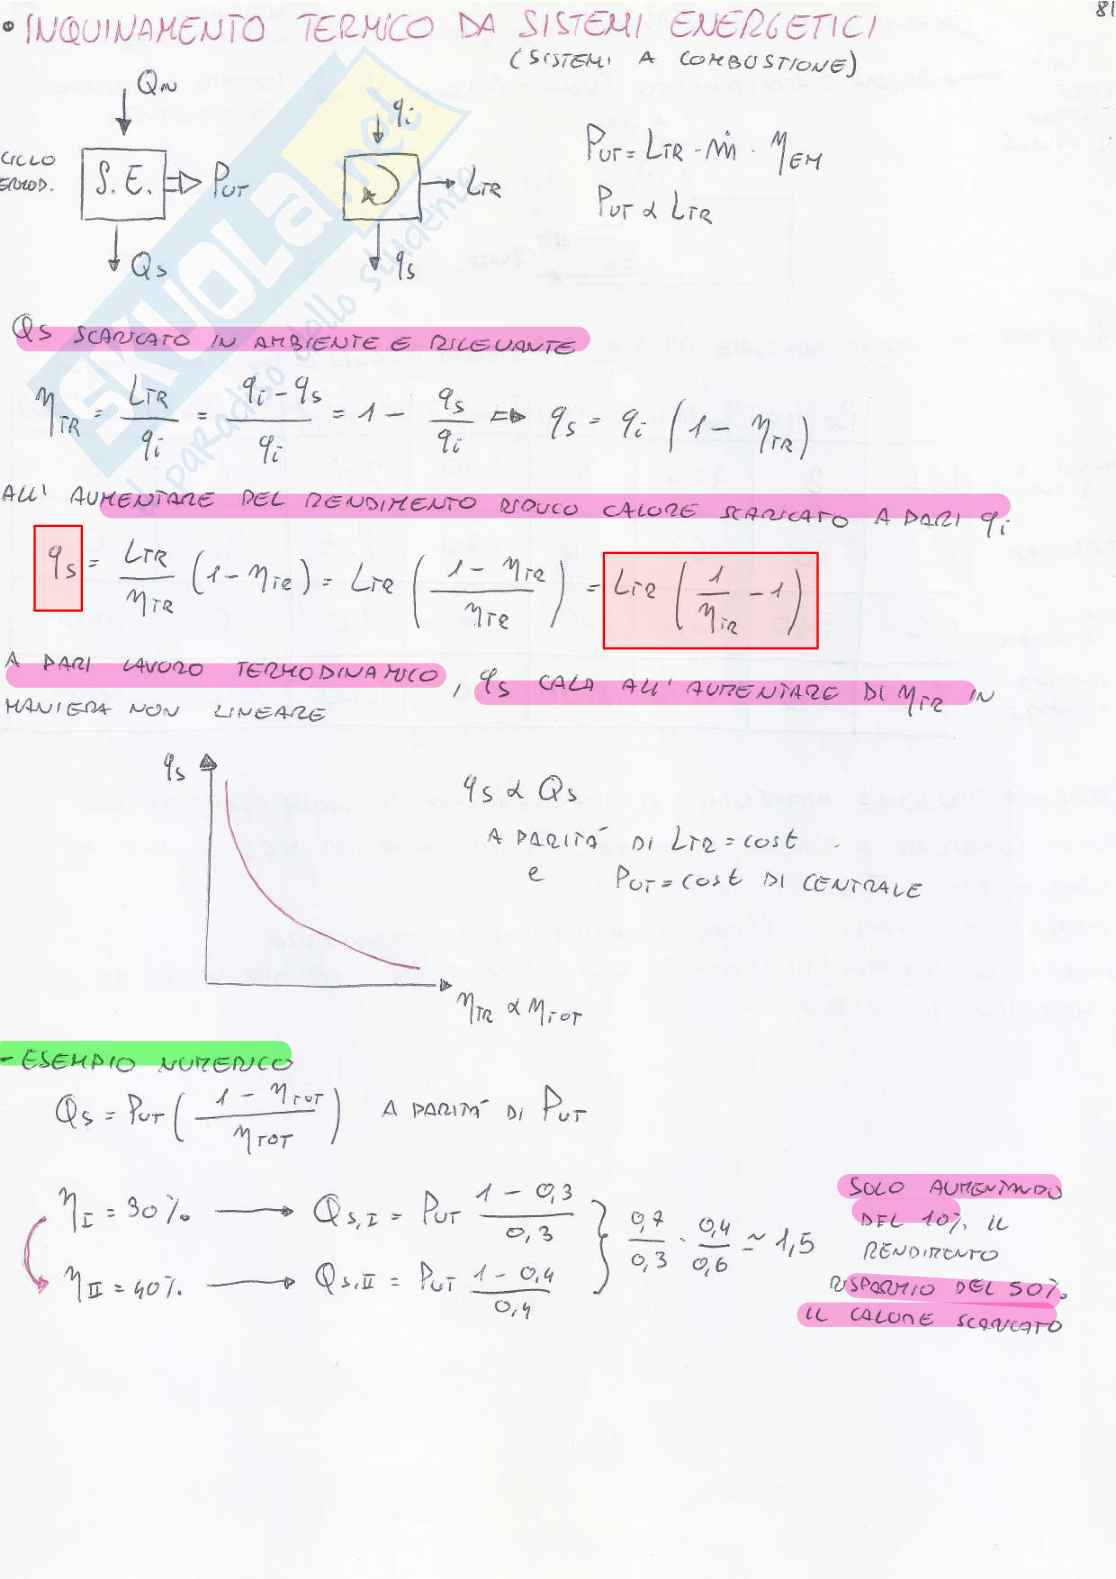 81
• INQUINAMENTO TERMICO DA SISTEMI ENERGETICI
(SISTEMI A COMBUSTIONE)
Q_IN
q_i
CICLO
S.E.
P_UT
L_TR
Q_S
q_S
P_UT = L_TR · ṁ · η_EM
P_UT α L_TR
SKUOLA.net
il paradiso dello studente
Q_S SCARICATO IN AMBIENTE È RILEVANTE
η_TR = L_TR / q_i = (q_i - q_s) / q_i = 1 - q_s / q_i ⇒ q_s = q_i (1 - η_TR)
ALL' AUMENTARE DEL RENDIMENTO RIDUCO CALORE SCARICATO A PARI q_i
q_s = L_TR / η_TR (1 - η_TR) = L_TR ((1 - η_TR) / η_TR) = L_TR (1 / η_TR - 1)
A PARI LAVORO TERMODINAMICO, q_s CALA ALL' AUMENTARE DI η_TR IN
MANIERA NON LINEARE
q_s
q_s α Q_s
A PARITÀ DI L_TR = cost
e P_UT = cost DI CENTRALE
η_TR α η_TOT
- ESEMPIO NUMERICO
Q_S = P_UT ((1 - η_TOT) / η_TOT) A PARITÀ DI P_UT
η_I = 30% → Q_S,I = P_UT (1 - 0,3) / 0,3
η_II = 40% → Q_S,II = P_UT (1 - 0,4) / 0,4
0,7 / 0,3 · 0,4 / 0,6 ≃ 1,5
SOLO AUMENTANDO
DEL 10% IL
RENDIMENTO
RISPARMIO DEL 50%
IL CALORE SCARICATO